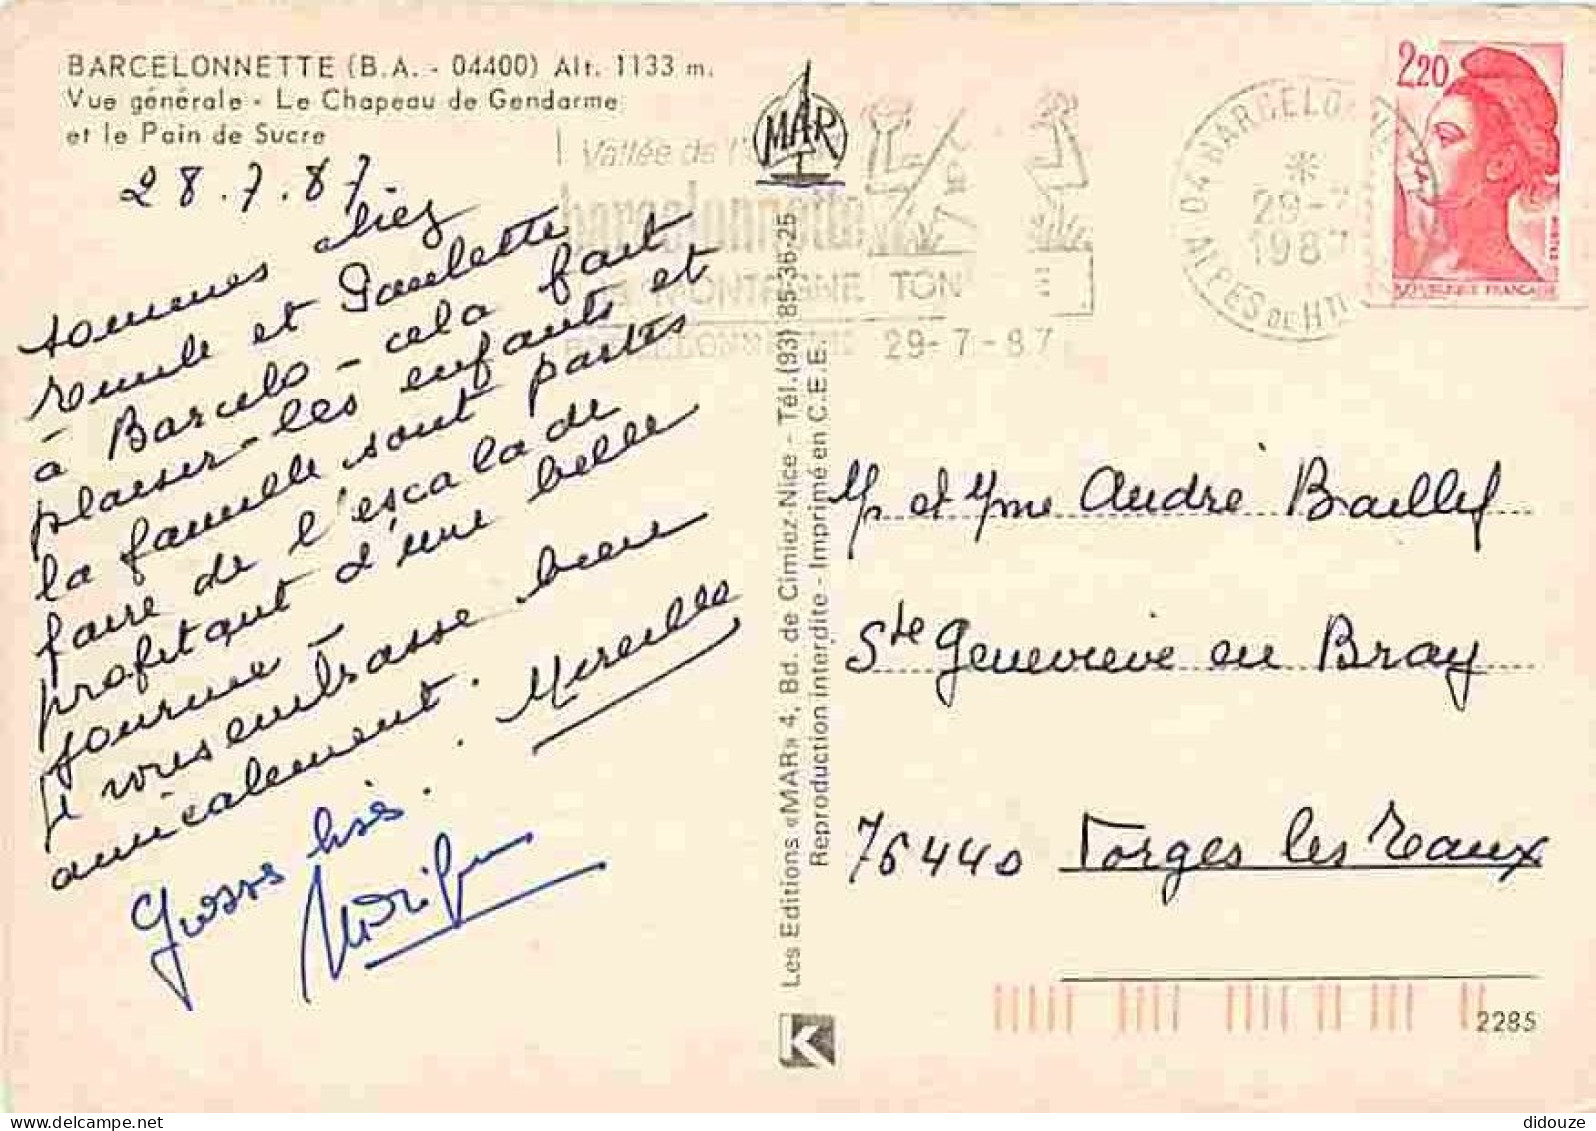 BARCELONNETTE (B.A. - 04400) Alt. 1133 m.
Vue générale - Le Chapeau de Gendarme
et le Pain de Sucre
28.7.87
sommes chez
et Paulette
à Barcelo - cela fait
plaisir - les enfants et
la famille sont partis
faire de l'escalade
profitant d'une belle
journée -
Je vous embrasse bien
amicalement.
Mireille
Grosses bises.
MAR
Les Editions «MAR» 4, Bd. de Cimiez-Nice - Tél. (93) 85-36-25
Reproduction interdite - Imprimé en C.E.E.
K
Vallée de l'
barcelonnette
MONTAGNE TON
29-7-87
04 BARCELO
29-7
1987
ALPES DE HTE
2,20
REPUBLIQUE FRANÇAISE
Mr et Mme André Bailly
Ste Geneviève en Bray
76440 Forges les Eaux
2285
didouze @ delcampe.net